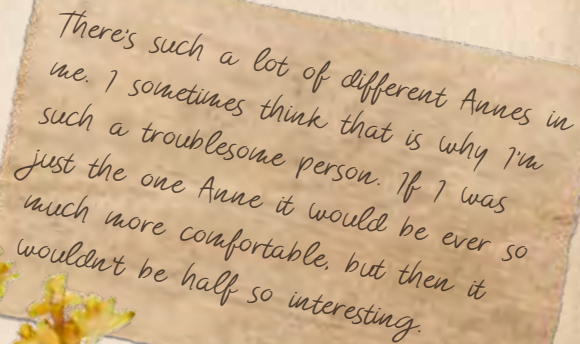 There's such a lot of different Annes in
me. I sometimes think that is why I'm
such a troublesome person. If I was
just the one Anne it would be ever so
much more comfortable, but then it
wouldn't be half so interesting.